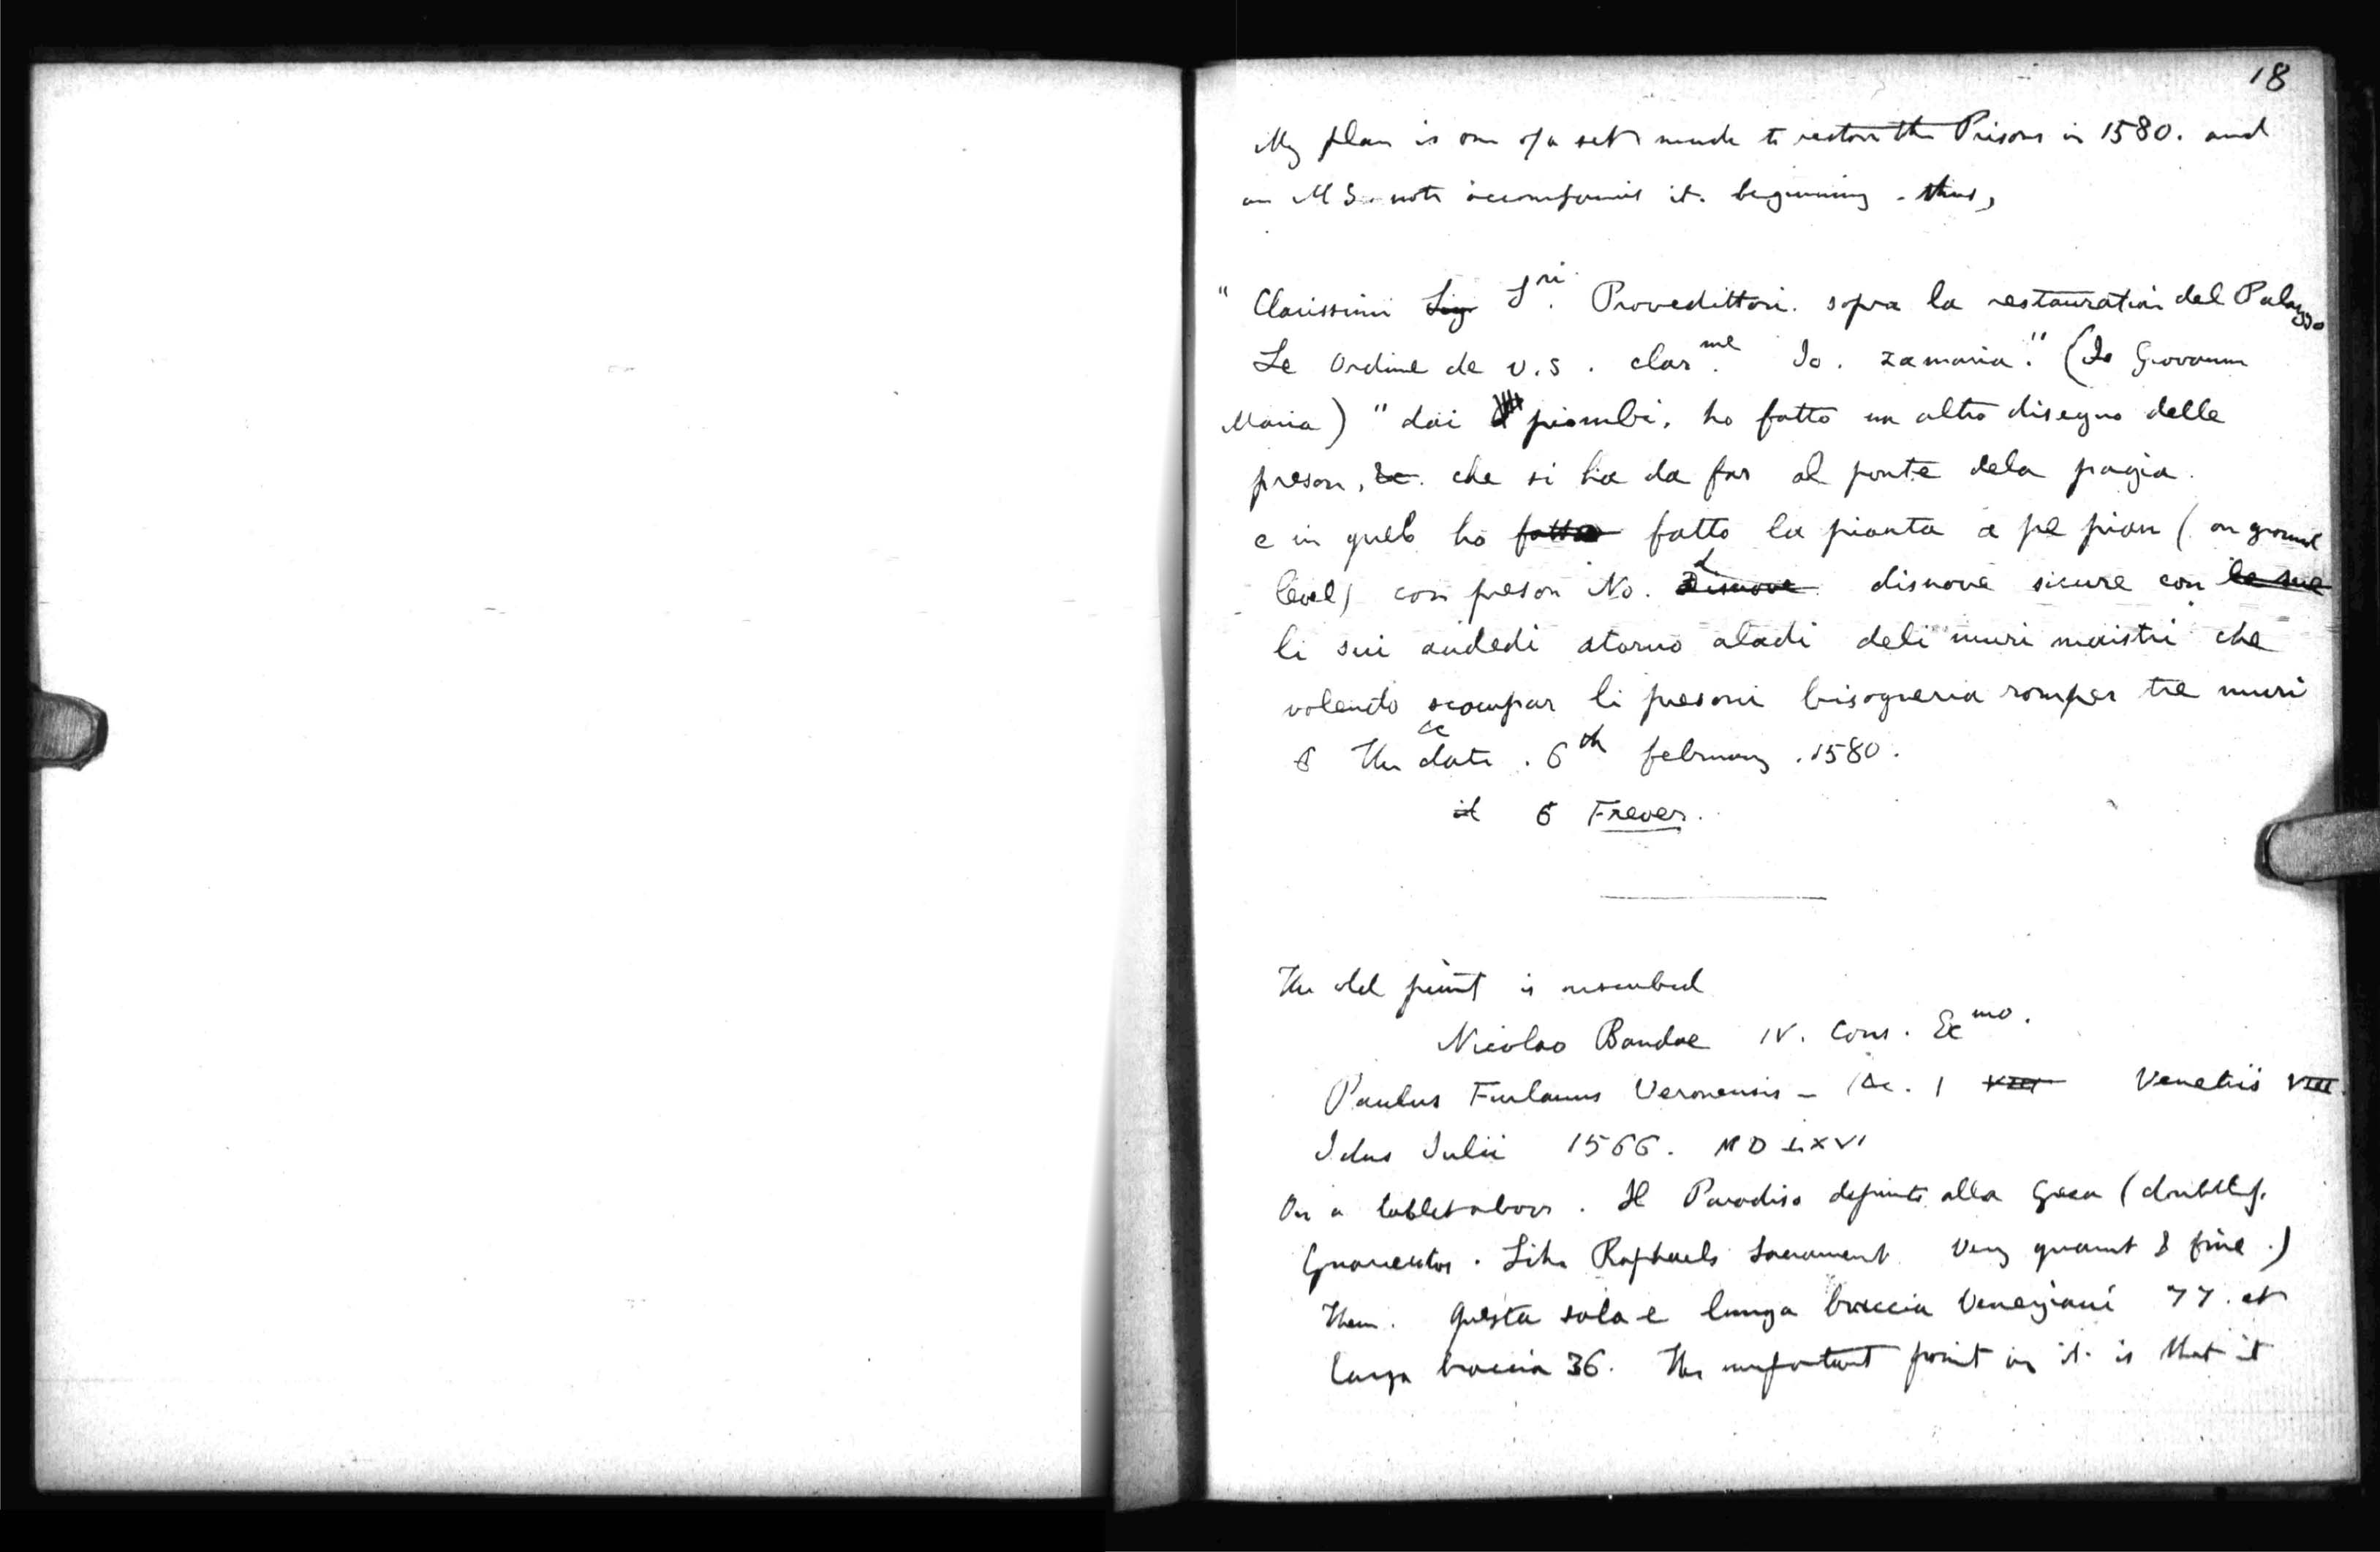 18
My plan is one of a set made to restore the Prisons in 1580. and
an MS. note accompanies it. beginning - thus,
" Clarissimi Sig Sri. Provedittori. sopra la restauration del Palazzo
Le Ordine de v.s. clar.me Io. zamaria." (Io Giovanni
Maria) " dai piombi, ho fatto un altro disegno delle
preson, &c. che si ha da far al ponte dela pagia.
e in quelo ho fatto fatto la pianta a pe pian ( on ground
level) con preson No. Disnove disnove sicure con le sue
li sui andedi atorno aladi deli muri maistri che
volendo scoupar li presoni bisogneria romper tre muri
&c
The date . 6th february . 1580.
il 6 Frever.
The old print is inscribed
Nicolao Bandae IV. Cons. Ecmo.
Paulus Furlanus Veronensis - &c. VIII Venetiis VIII.
Idus Julii 1566. MDLXVI
On a tablet above. Il Paradiso depinto alla (doubtless
Guarientos. Like Raphaels Sacrament Very quaint & fine.)
Then. Questa sala e lunga braccia Veneziani 77. et
larga braccia 36. The important point in it. is that it